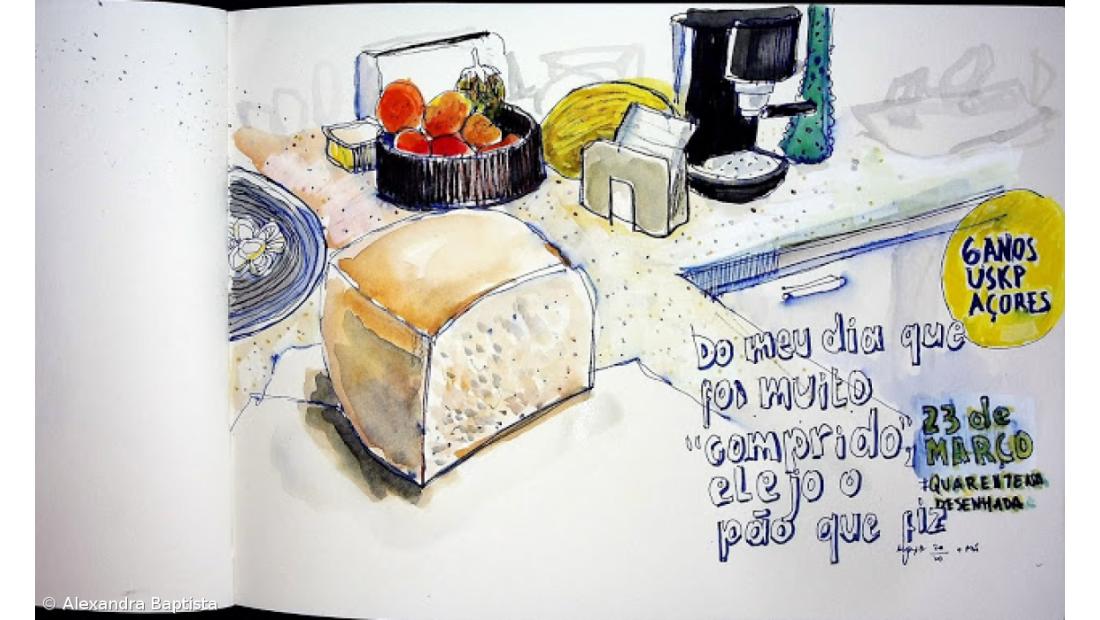 6 ANOS
USKP
AÇORES
Do meu dia que
foi muito
"comprido",
elejo o
pão que fiz
23 de
MARÇO
#QUARENTENA
DESENHADA
© Alexandra Baptista